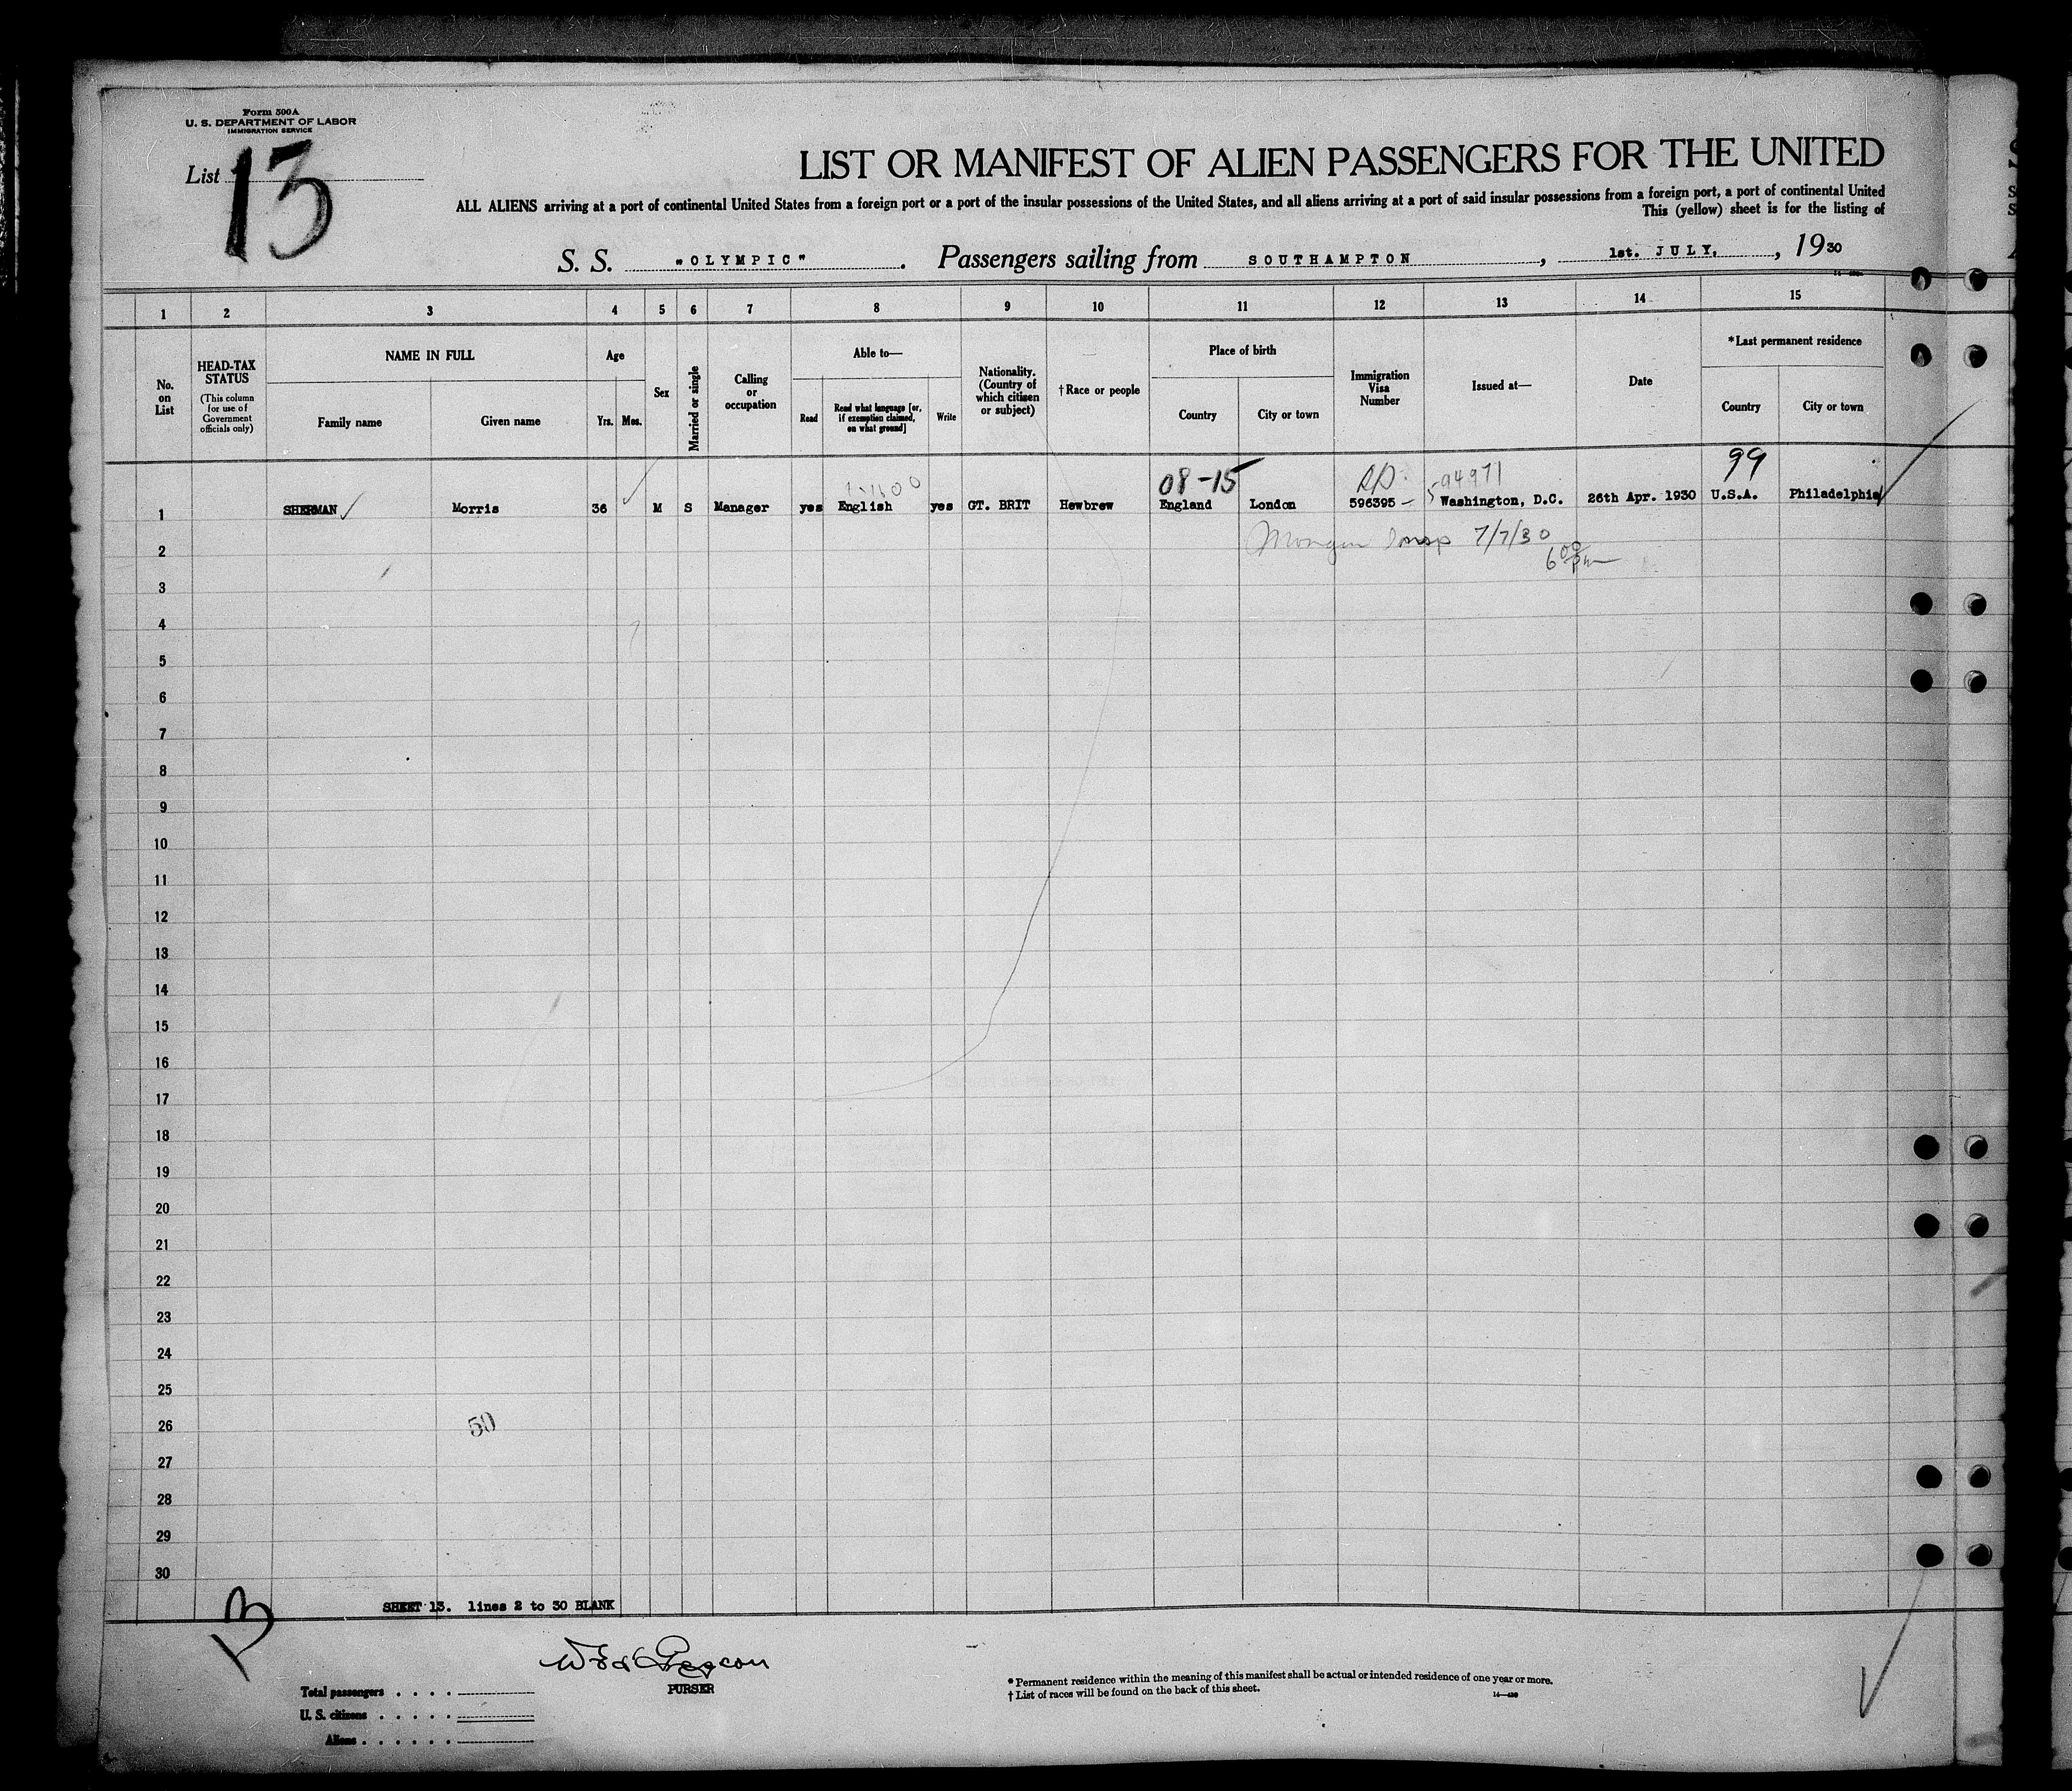 Form 500A
U. S. DEPARTMENT OF LABOR
IMMIGRATION SERVICE
List 13
LIST OR MANIFEST OF ALIEN PASSENGERS FOR THE UNITED
ALL ALIENS arriving at a port of continental United States from a foreign port or a port of the insular possessions of the United States, and all aliens arriving at a port of said insular possessions from a foreign port, a port of continental United
This (yellow) sheet is for the listing of
S. S. "OLYMPIC". Passengers sailing from SOUTHAMPTON, 1st. JULY., 1930
1 2 3 4 5 6 7 8 9 10 11 12 13 14 15
No. on List
HEAD-TAX STATUS (This column for use of Government officials only)
NAME IN FULL
Family name
Given name
Age
Yrs. Mos.
Sex
Married or single
Calling or occupation
Able to—
Read
Read what language [or, if exemption claimed, on what ground]
Write
Nationality. (Country of which citizen or subject)
†Race or people
Place of birth
Country
City or town
Immigration Visa Number
Issued at—
Date
*Last permanent residence
Country
City or town
08-15 594971 99
1 SHERMAN Morris 36 M S Manager yes English yes GT. BRIT Hewbrew England London 596395 Washington, D.C. 26th Apr. 1930 U.S.A. Philadelphia
2 7/7/30
6 00 pm
3
4
5
6
7
8
9
10
11
12
13
14
15
16
17
18
19
20
21
22
23
24
25
26 50
27
28
29
30
SHEET 13. lines 2 to 30 BLANK
13
PURSER
Total passengers
U. S. citizens
Aliens
* Permanent residence within the meaning of this manifest shall be actual or intended residence of one year or more.
† List of races will be found on the back of this sheet.